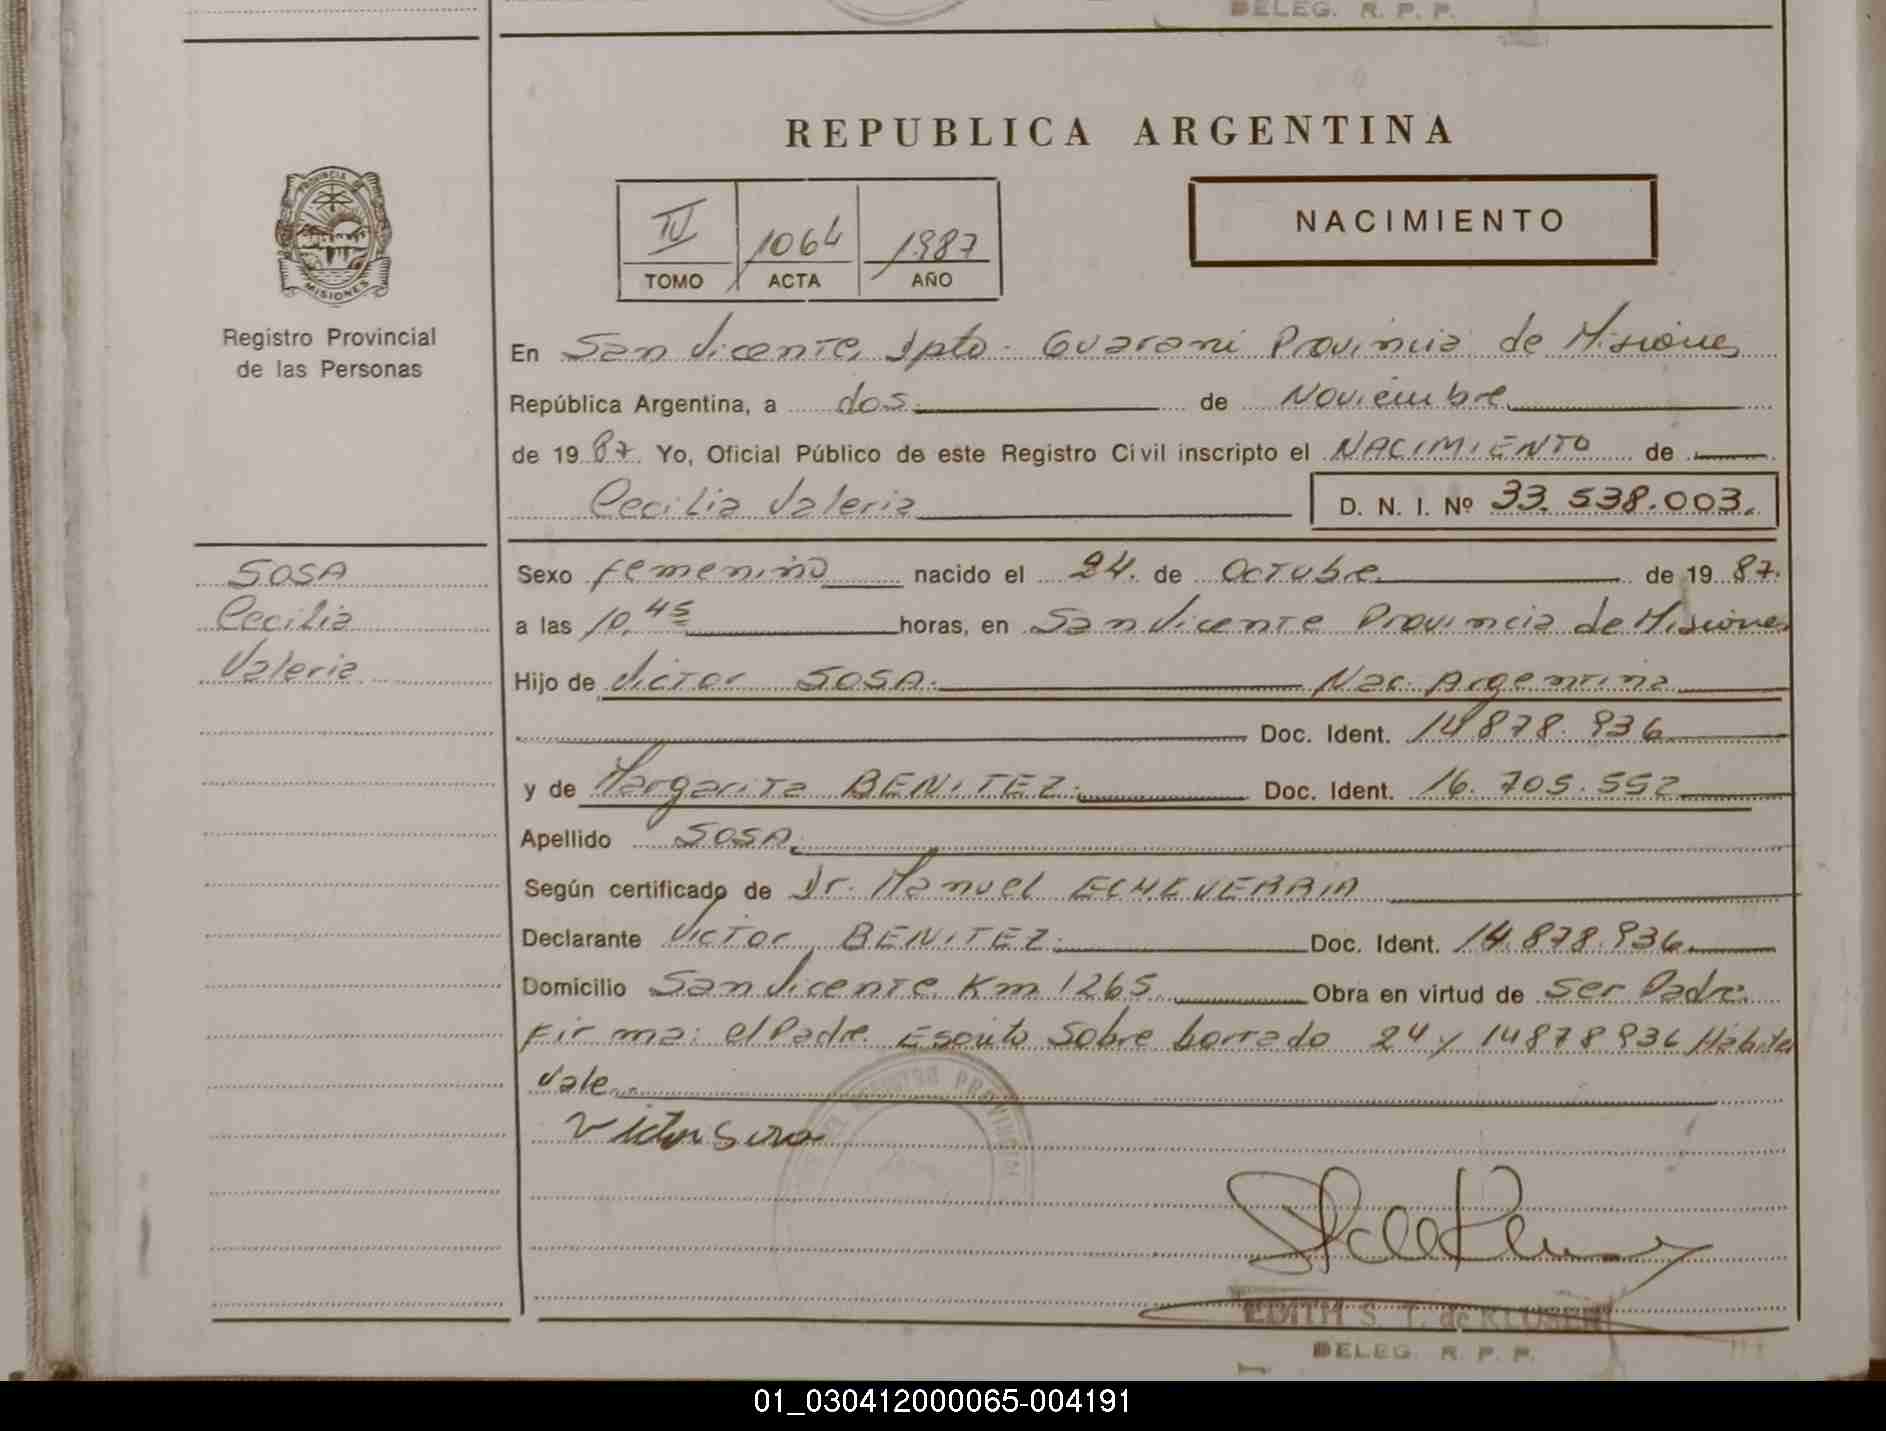 DELEG. R. P. P.
REPUBLICA ARGENTINA
PROVINCIA DE
MISIONES
IV 1064 1987
TOMO ACTA AÑO
NACIMIENTO
Registro Provincial
de las Personas
En San Vicente, Dpto. Guarani Provincia de Misiones
República Argentina, a dos de Noviembre
de 1987. Yo, Oficial Público de este Registro Civil inscripto el NACIMIENTO de
Cecilia Valeria D. N. I. Nº 33.538.003.
SOSA
Cecilia
Valeria
Sexo femenino nacido el 24. de Octubre de 1987.
a las 10,45 horas, en San Vicente Provincia de Misiones
Hijo de Victor SOSA. Nac. Argentina
Doc. Ident. 14.878.936
y de Margarita BENITEZ. Doc. Ident. 16.705.552
Apellido SOSA.
Según certificado de Dr. Manuel ECHEVERRIA
Declarante Victor BENITEZ. Doc. Ident. 14.878.936
Domicilio San Vicente Km 1265 Obra en virtud de ser Padre.
Firma: el Padre. Escrito sobre borrado 24 y 14878936
Vale
Victor Sosa
REGISTRO PROVINCIAL
EDITH S. T. de KLUSENER
DELEG. R. P. P.
01_030412000065-004191